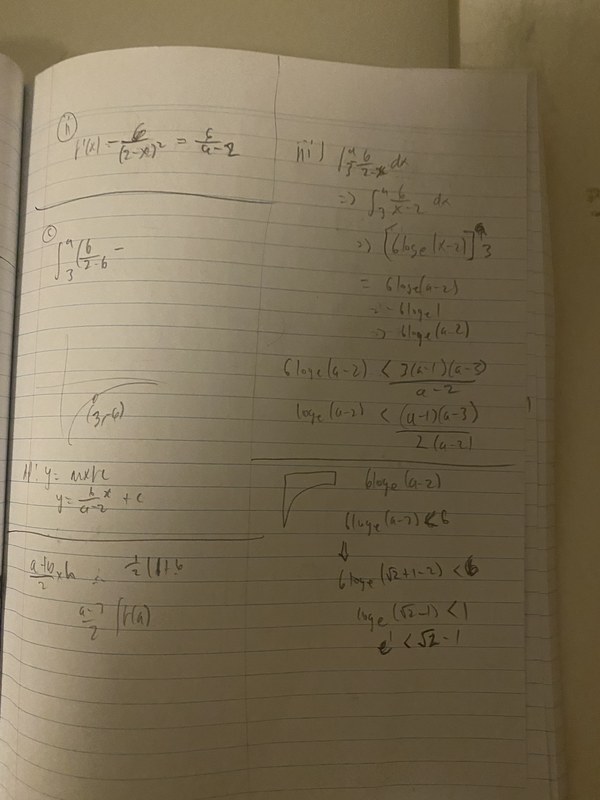 ii
f'(x) = 6/(2-x)² = 6/a-2
c
∫₃ᵃ (6/2-6 -
(3,-6)
y = mx+c
y = x/a-2 + c
a+b/2 × h
a-3/2
iii)
∫₃ᵃ 6/2-x dx
=> ∫₃ᵃ 6/x-2 dx
=> [6logₑ(x-2)]ᵃ₃
= 6logₑ(a-2)
- 6logₑ1
=> 6logₑ(a-2)
6logₑ(a-2) < 3(a-1)(a-3)/a-2
logₑ(a-2) < (a-1)(a-3)/2(a-2)
6logₑ(a-2)
6logₑ(a-2) < 6
⇓
6logₑ(√2+1-2) < 6
logₑ(√2-1) < 1
e¹ < √2-1